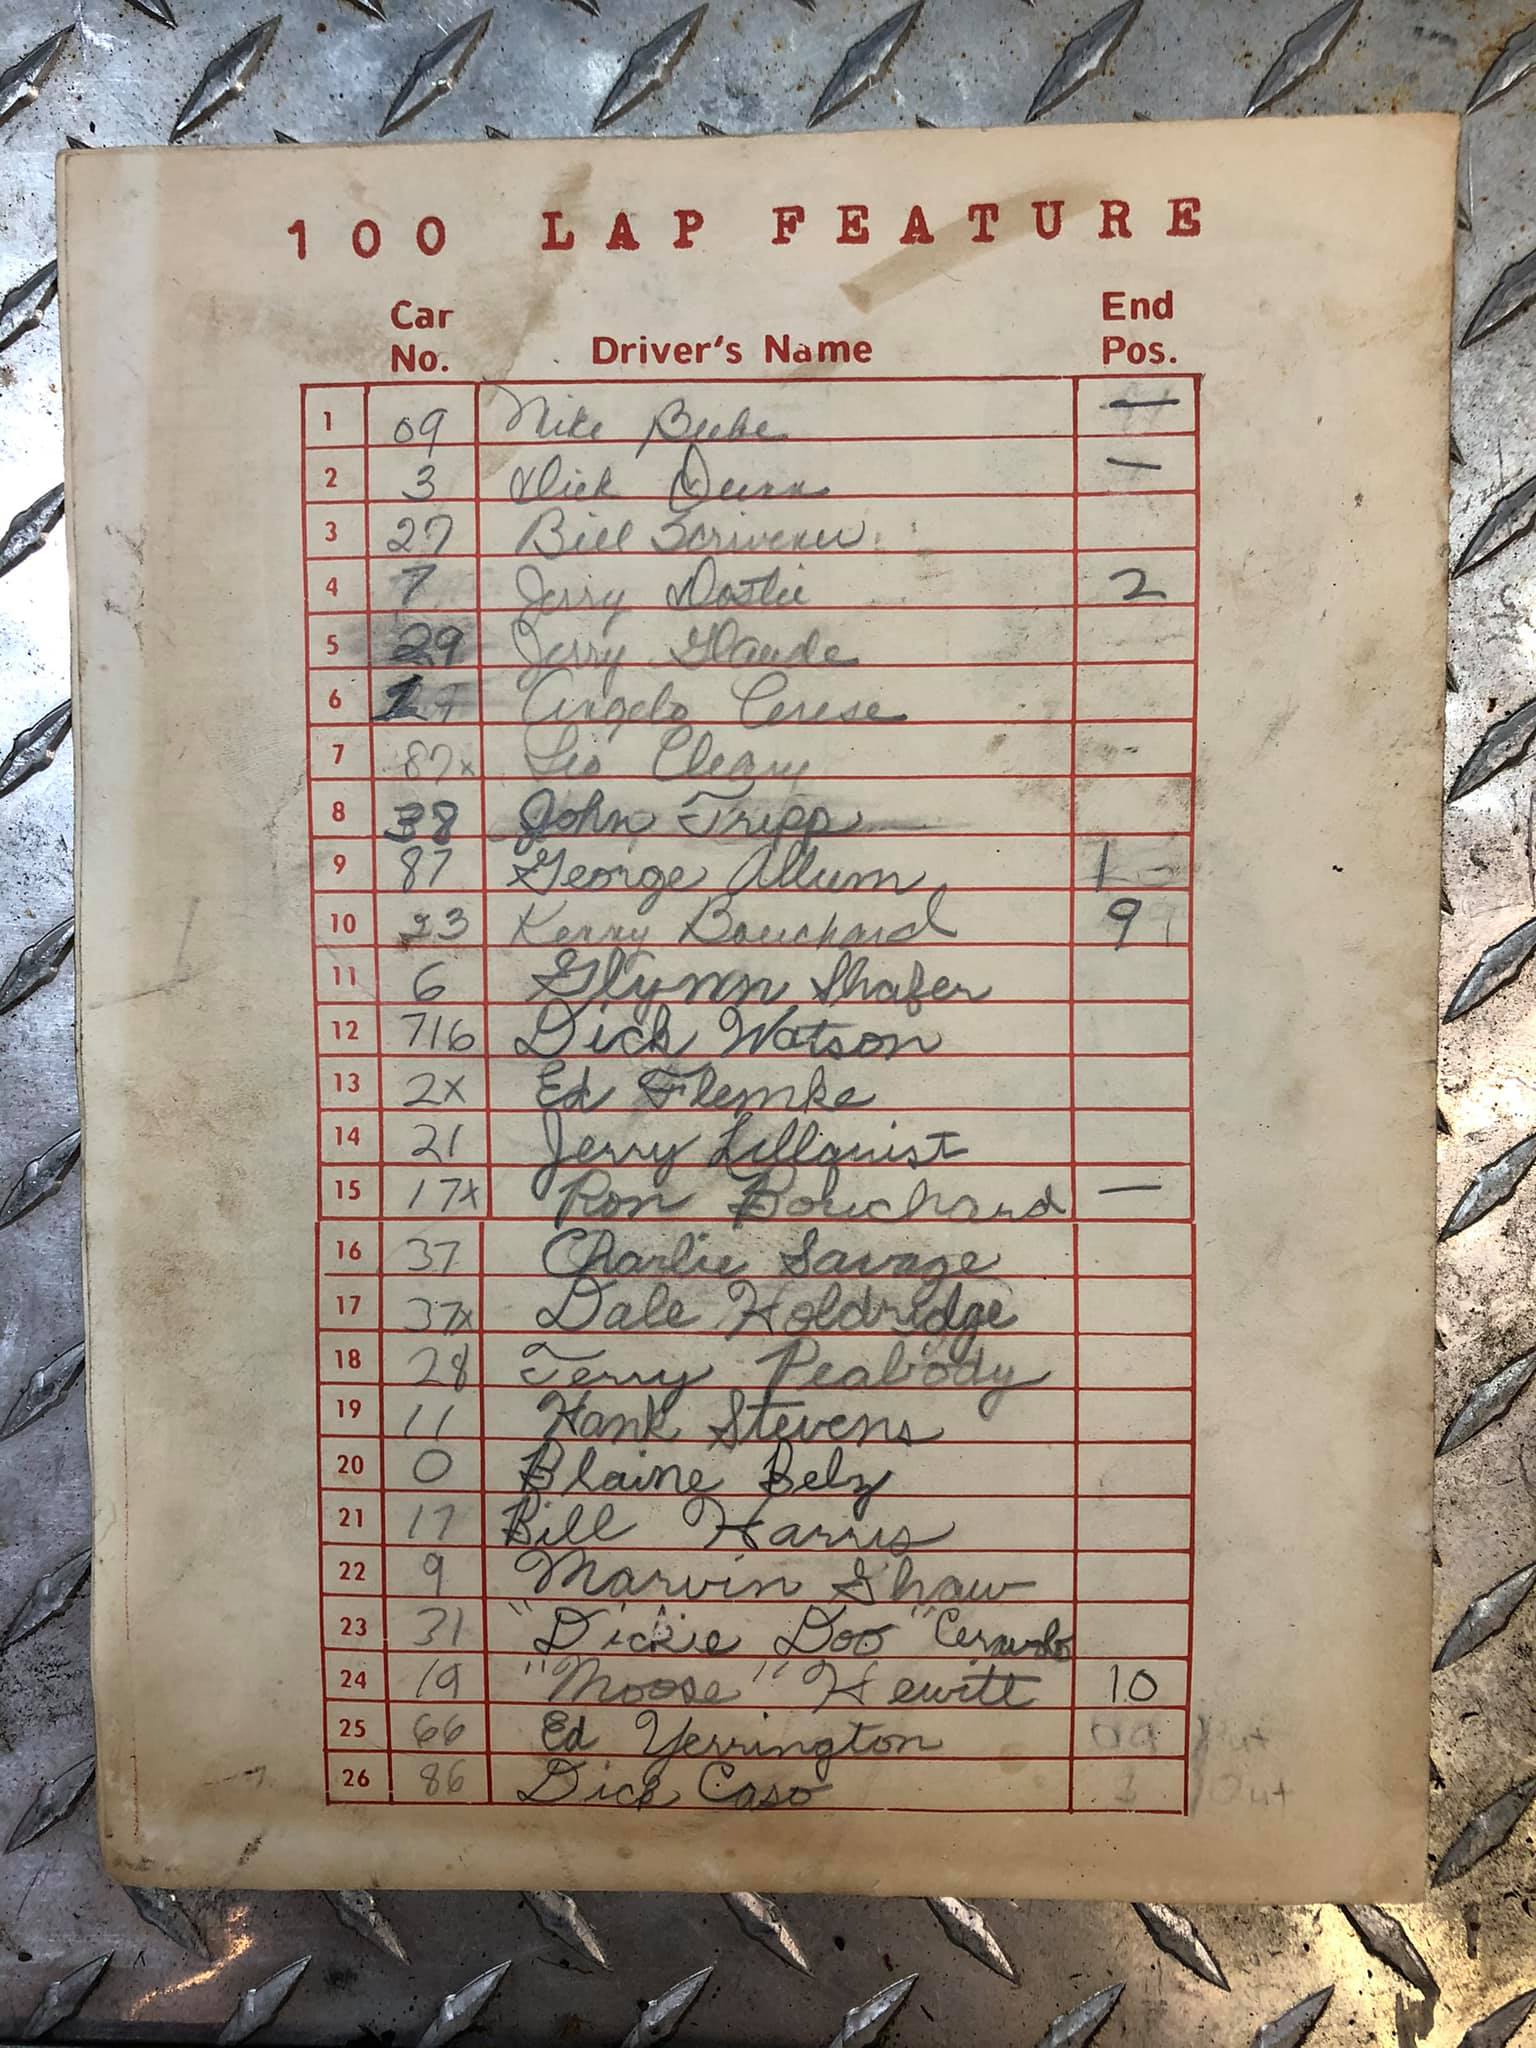 100 LAP FEATURE
Car No. Driver's Name End Pos.
1 09 Mike Beebe —
2 3 Dick Dunn —
3 27 Bill Scrivener
4 7 Jerry Dostie 2
5 29 Jerry Glaude
6 Angelo Cerese
7 87x Leo Cleary
8 38 John Tripp
9 87 George Allum 1
10 23 Kenny Bouchard 9
11 6 Glynn Shafer
12 716 Dick Watson
13 2x Ed Flemke
14 21 Jerry Lillquist
15 17x Ron Bouchard —
16 37 Charlie Savage
17 37x Dale Holdridge
18 28 Terry Peabody
19 11 Hank Stevens
20 0 Blaine Belz
21 17 Bill Harris
22 9 Marvin Shaw
23 31 "Dickie Doo" Ceravolo
24 19 "Moose" Hewitt 10
25 66 Ed Yerrington Out
26 86 Dick Caso Out